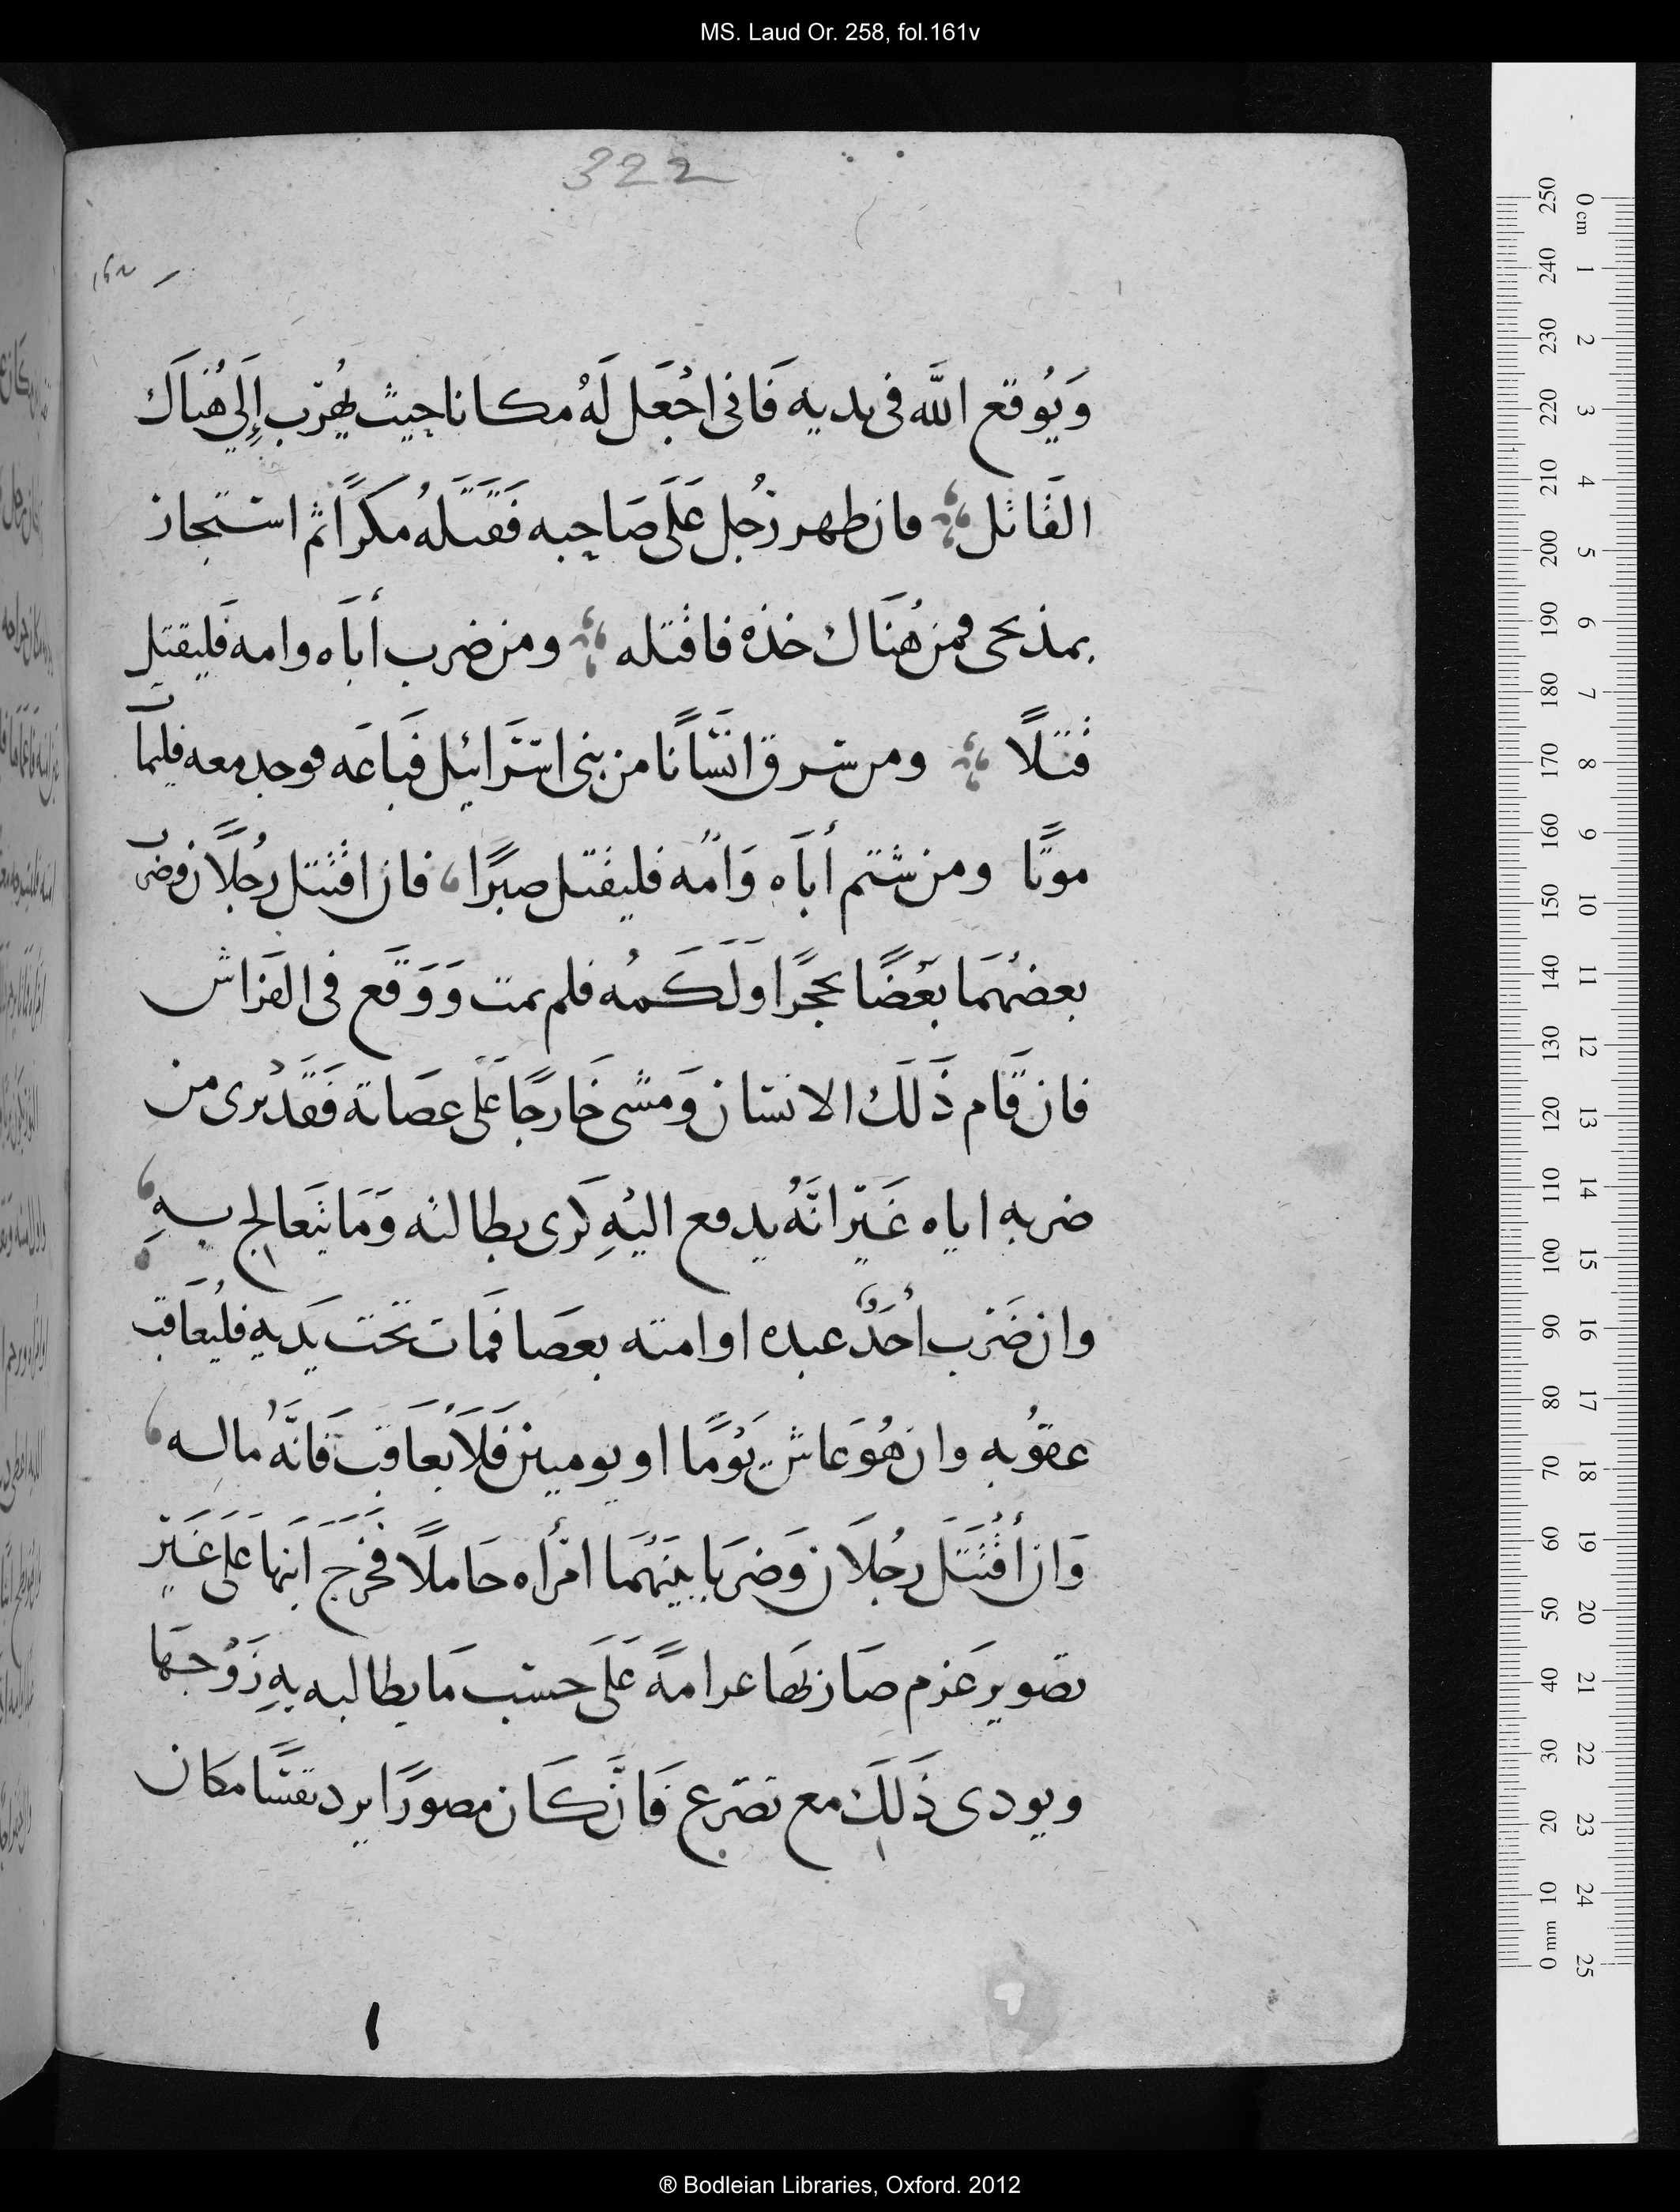 MS. Laud Or. 258, fol.161v
322
وَيُوقع اللَّه فى يديه فَانى اجْعَل لَهُ مكانا حيث يُهرَب إِلَي هُنَاكَ
القَاتل فان ظهر رَجُل عَلَى صَاحِبه فَقَتَلَهُ مَكرًا ثم استجار
بمذبحى فمن هُنَاك خذه فاقتله ومن ضرب أبَاه وامه فَليقتل
قتلًا ومن سرق انسَانًا من بنى اسرَائيل فَبَاعَه فوجد معه فليمَت
موتًا ومن شتم أبَاه وَامّه فليقتل صبرًا فان اقتتل رجُلَان وضرب
بعضهُمَا بَعْضًا بحجرًا ولَكَمهُ فلم يمت وَوَقَع فى الفرَاش
فان قَام ذَلَك الانسان وَمشى خَارجًا عَلَى عصَاته فَقَدْ برى من
ضربه اياه غَيْر انَّهُ يدفع اليْهِ كَرى بطالته وَمَا يتَعالج بهِ
وان ضَرَب أحَدٌ عبده او امته بعصَا فمَات تحت يَديهِ فليُعَاقب
عقوُبه وان هُوَ عاش يَوْمًا او يومين فَلَا يُعَاقَب فَانَّهُ ماله
وَان أقْتَتَلَ رجُلَان وَضرَبا بينَهُمَا امْرأه حَاملًا فخَرَجَ ابَنها عَلَى غَيْر
تصوير عَزم صَار لَها عرامةً عَلَى حسْب مَا يطالبه بهِ زَوْجهَا
ويودى ذَلَكِ مع تضرع فَانّ كَان مصورًا يرد نفسًا مكان
® Bodleian Libraries, Oxford. 2012